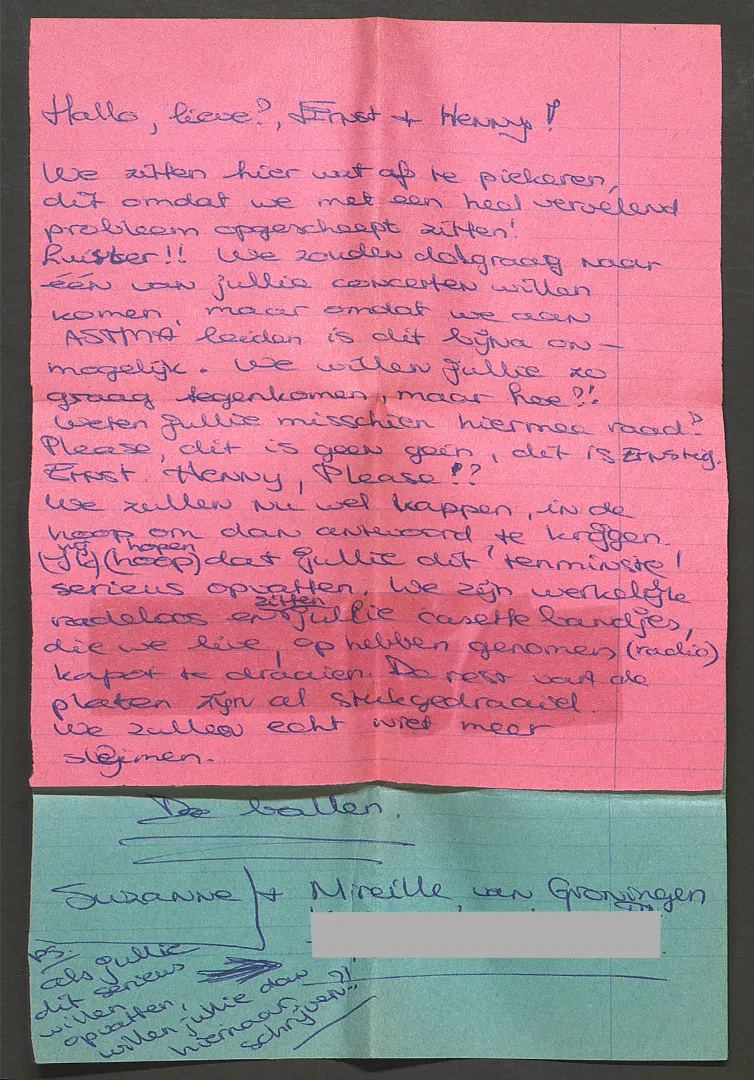 Hallo, lieve?, Ernst + Henny!
We zitten hier wat af te piekeren,
dit omdat we met een heel vervelend
probleem opgescheept zitten!
Luister!! We zouden dolgraag naar
één van jullie concerten willen
komen, maar omdat we aan
ASTMA leiden is dit bijna on-
mogelijk. We willen jullie zo
graag tegenkomen, maar hoe?!
Weten jullie misschien hiermee raad?
Please, dit is geen gein, dit is Ernstig.
Ernst. Henny, Please!?
We zullen nu wel kappen, in de
hoop om dan antwoord te krijgen.
wij hopen
(hoop) dat jullie dit, tenminste!
serieus opvatten. We zijn werkelijk
zitten
radeloos en jullie casette bandjes,
die we live, op hebben genomen (radio)
kapot te draaien. De rest van de
platen zijn al stukgedraaid.
We zullen echt niet meer
slijmen.
De ballen.
Suzanne + Mireille van Groningen
PS.
als jullie
dit serieus
willen
opvatten,
willen jullie dan
hiernaar
schrijven?!